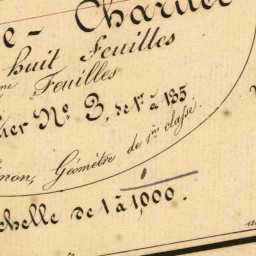 e- Charlie
huit Feuilles
me Feuilles
ier Nº 3, de 1r. à 135
non, Géomètre de 1re classe.
chelle de 1 à 1,000.